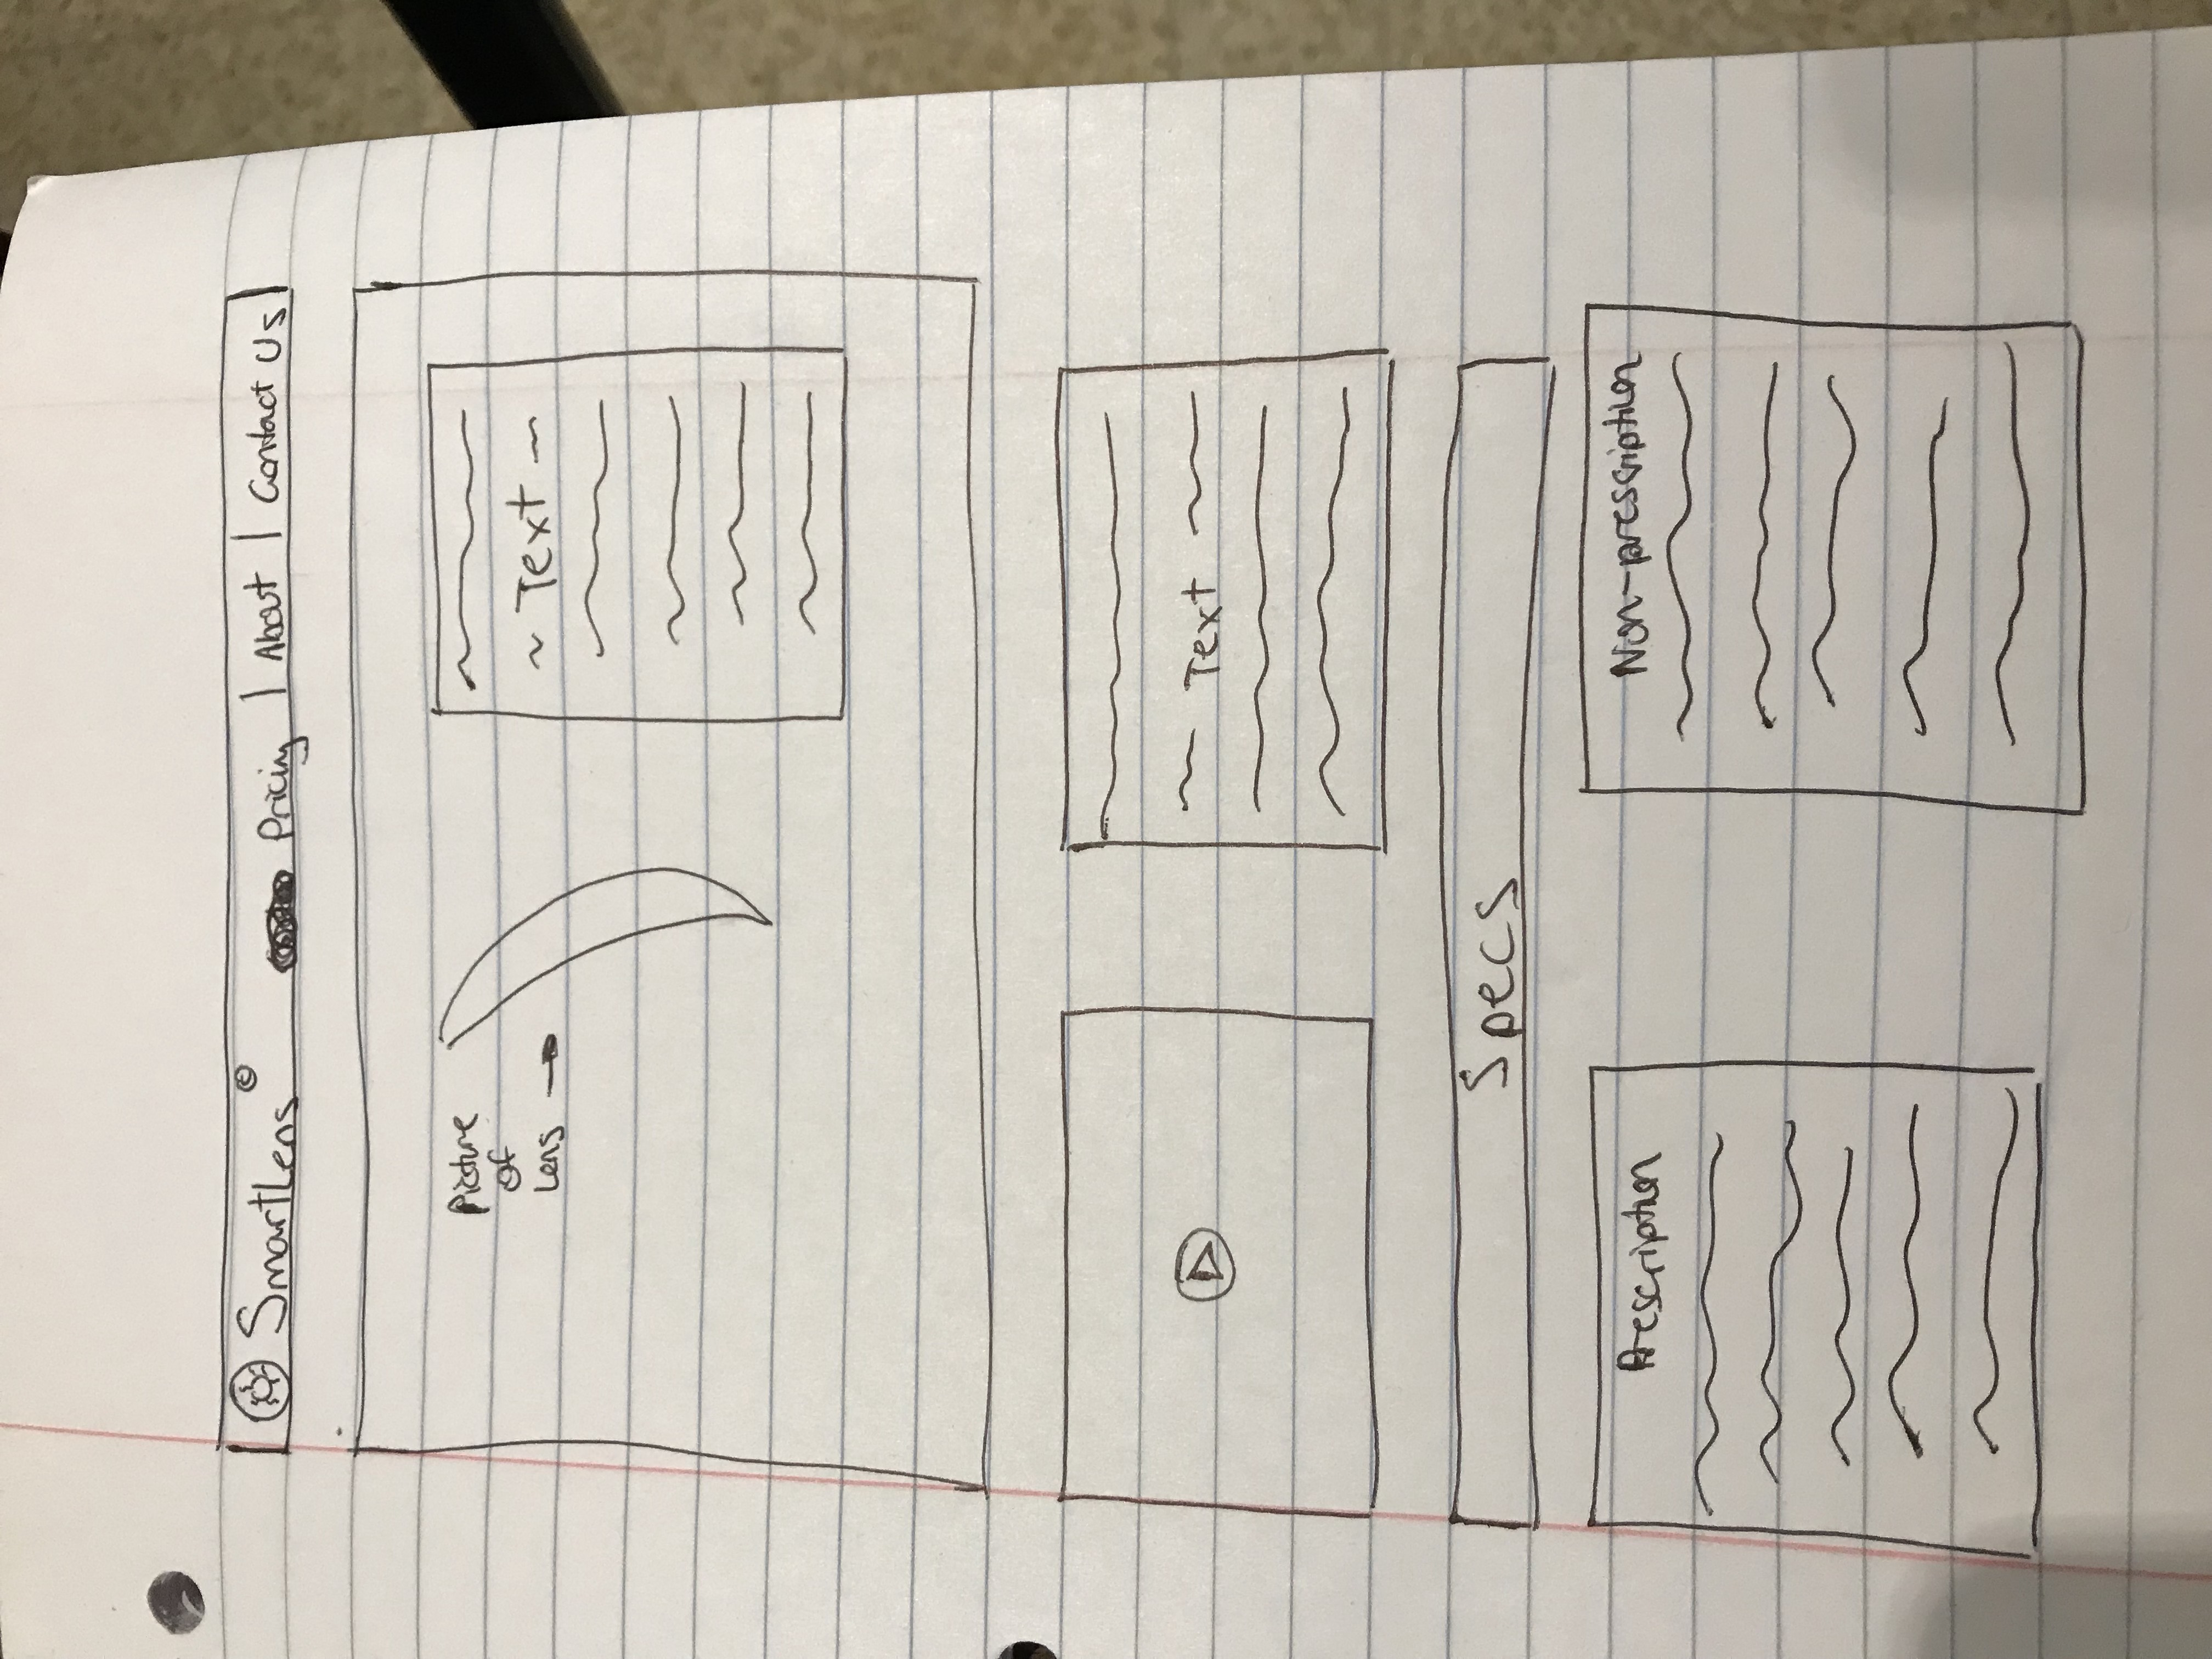 SmartLens © Pricing | About | Contact Us
Picture
of
Lens
Text
Text
Specs
Prescription
Non-prescription